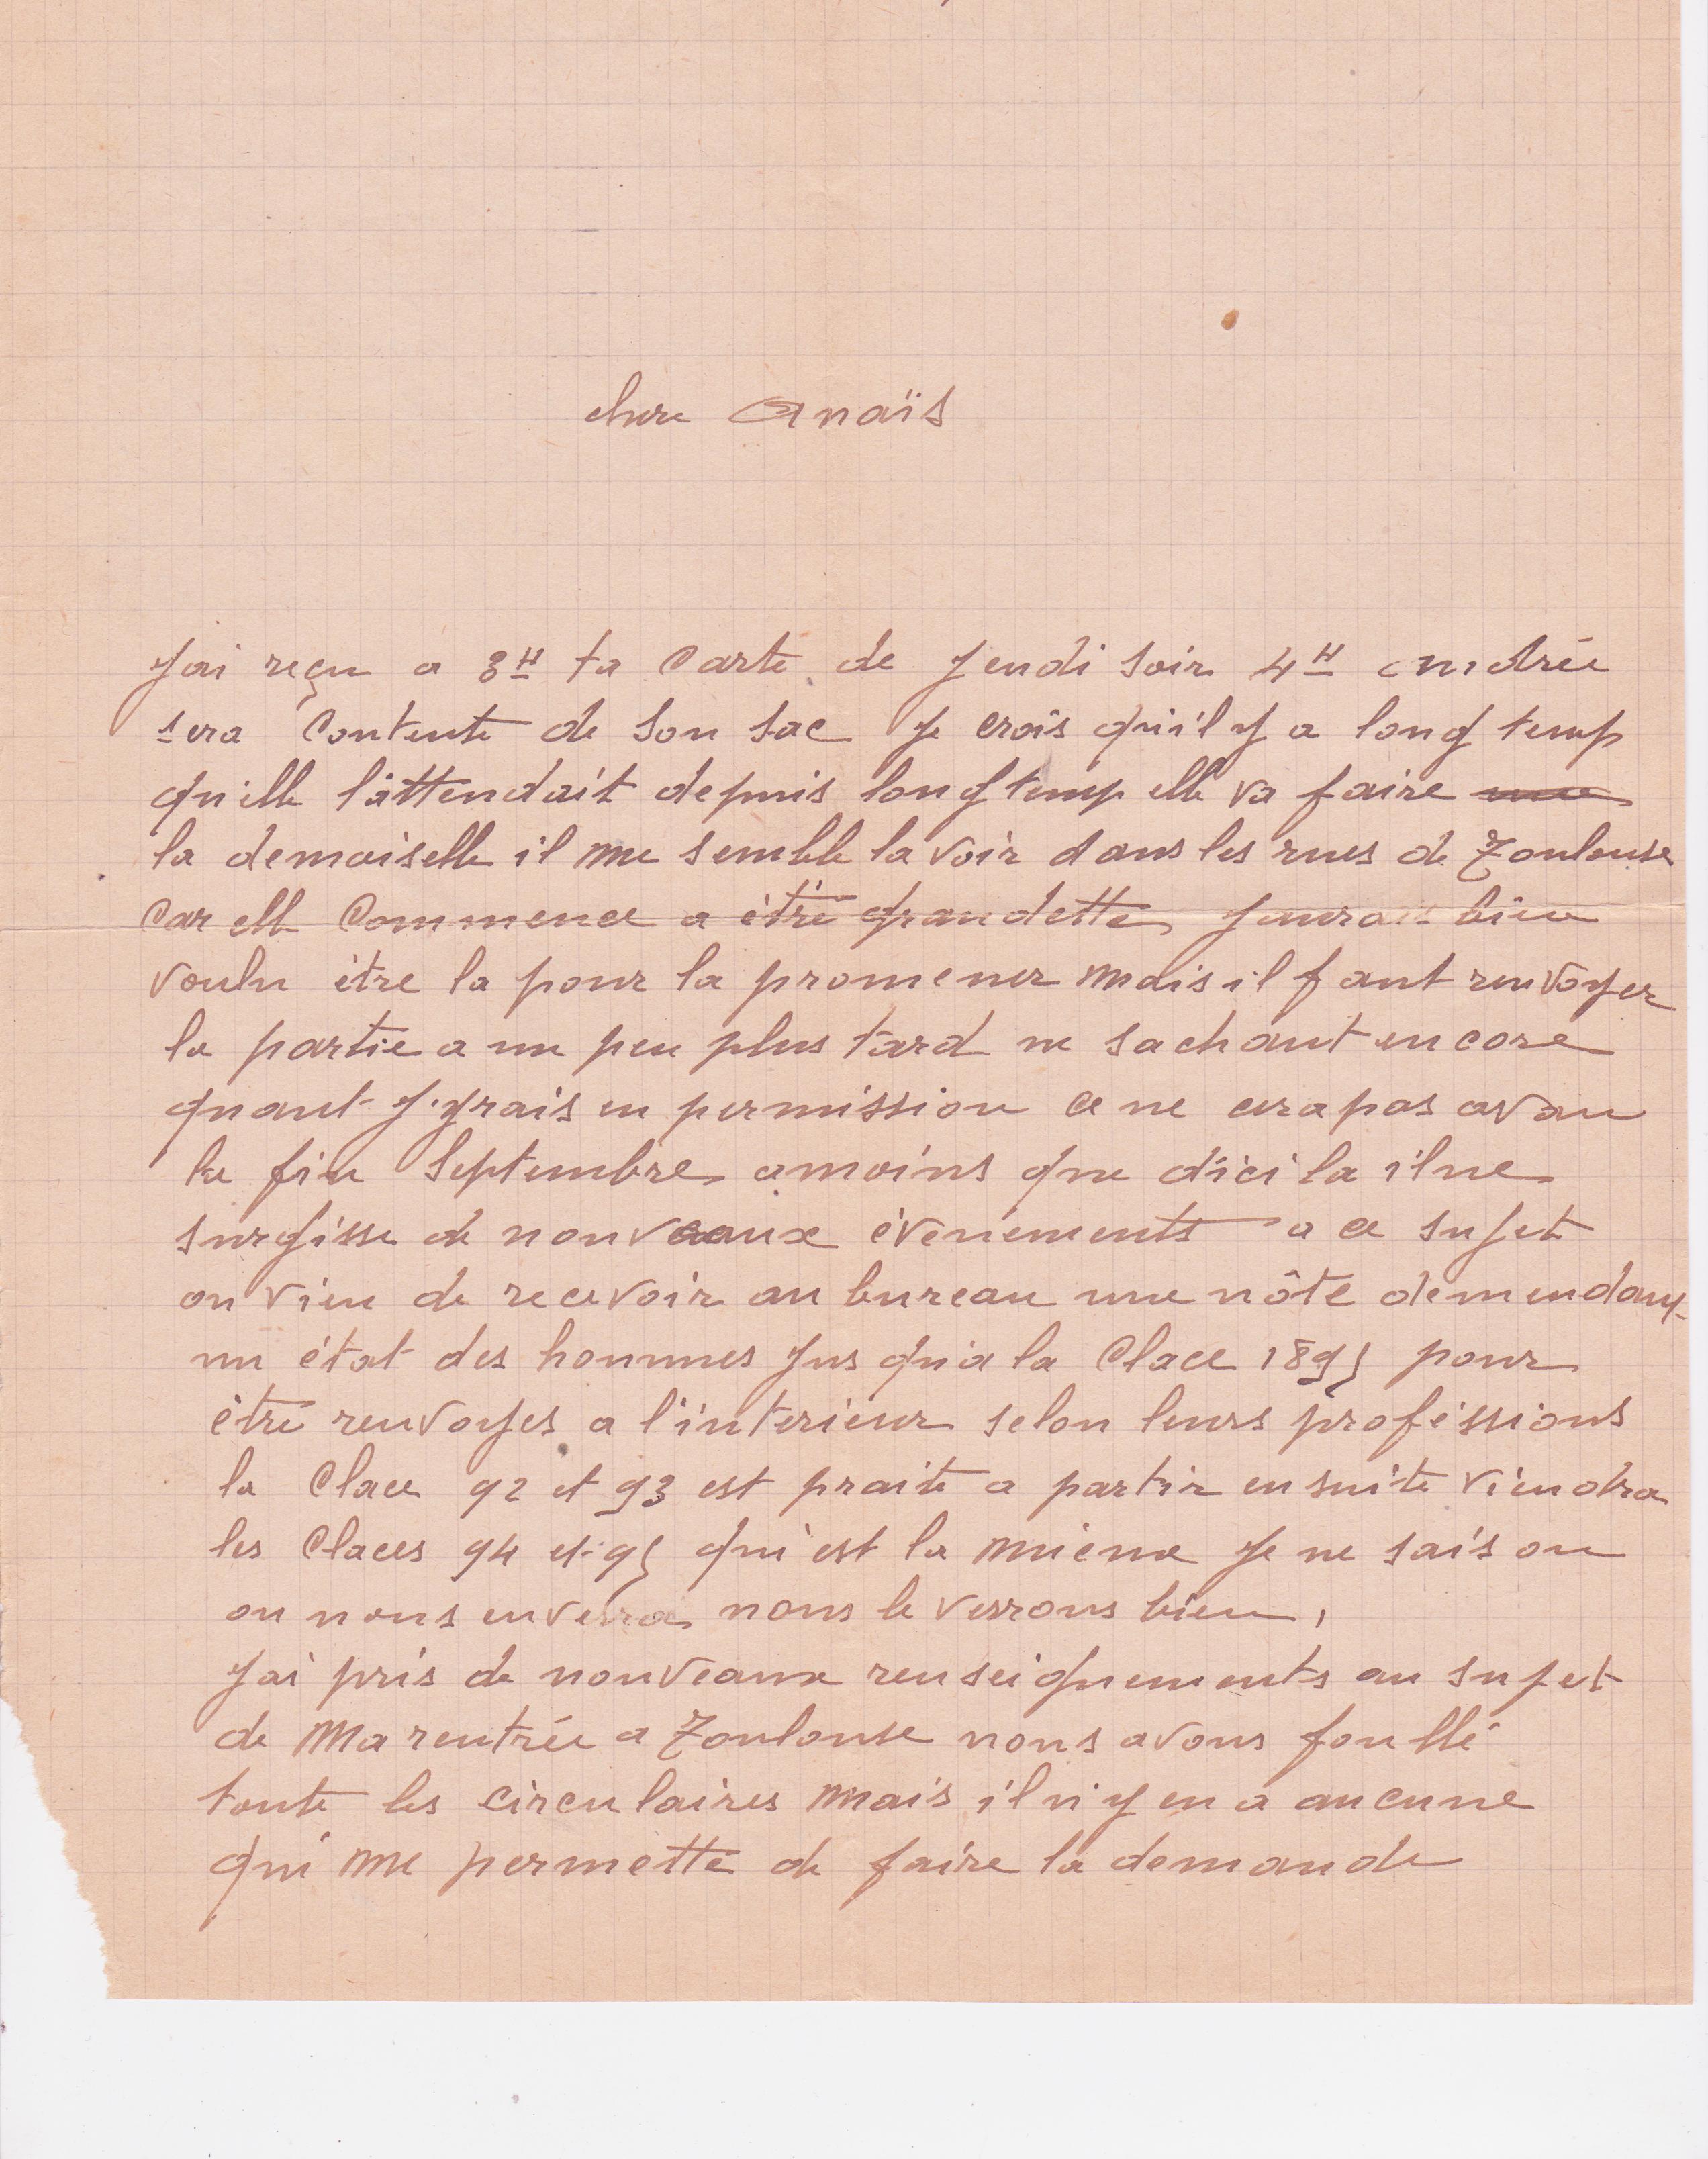 chere Anaïs
Jai reçu a 3H ta Carte de Jeudi soir 4H Andrée
sera Contente de son sac Je crois qu'il y a long temp
qu'elle l'attendait depuis longtemp elle va faire
la demoiselle il me semble la voir dans les rues de Toulouse
Car elle Commence a être grandette Jaurais bien
voulu être la pour la promener mais il faut renvoyer
la partie a un peu plus tard ne sachant encore
quant J'yrais en permission ce ne cera pas avan
la fin Septembre amoins que dici la il ne
surgisse de nouveaux évenements a ce sujet
on vien de recevoir au bureau une nôte demendant
un état des hommes Jusqu'a la Clace 1895 pour
être renvoyes a l'interieur selon leurs proféssions
la Clace 92 et 93 est praite a partir ensuite viendra
les Claces 94 et 95 qui est la mienne Je ne sais ou
on nous enverra nous le verrons bien,
Jai pris de nouveaux renseignements au sujet
de Ma rentrée a Toulouse nous avons foullé
toute les circulaires mais il n'y en a aucune
qui me permette de faire la demande